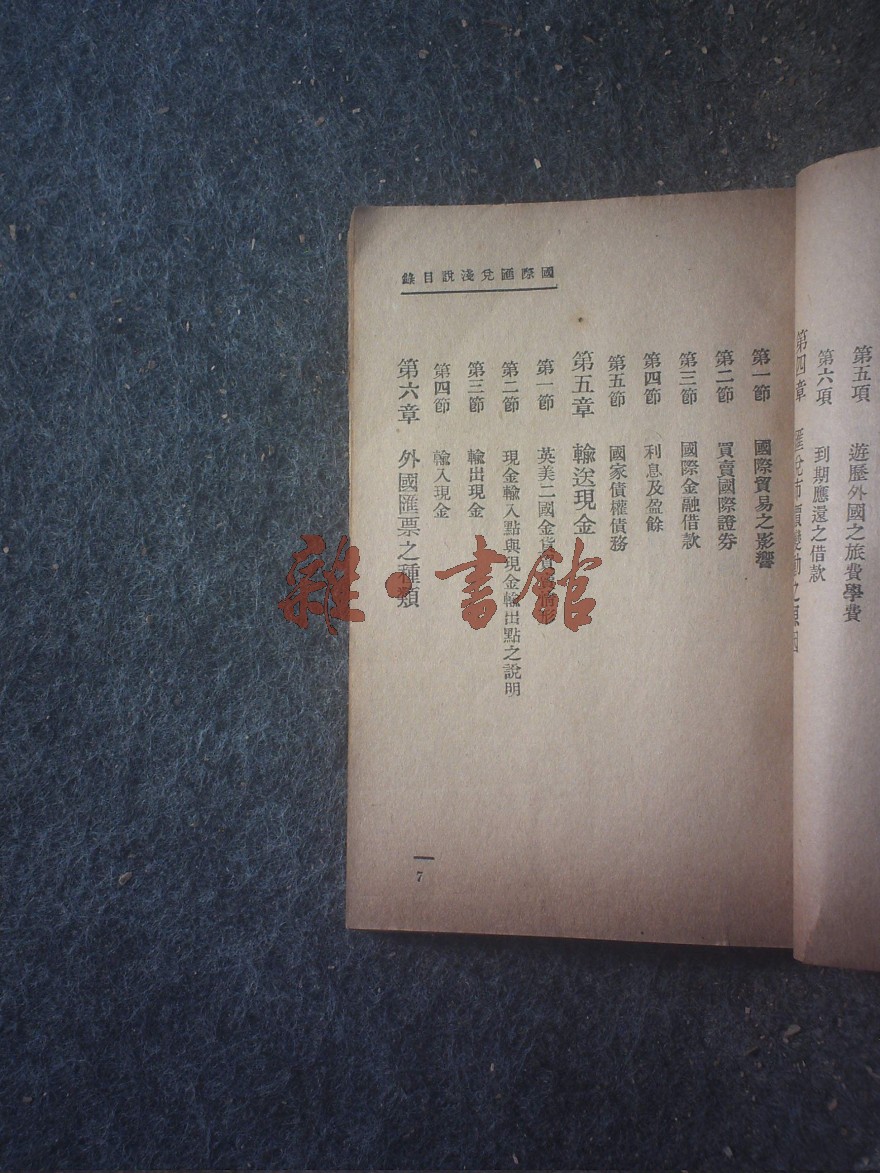 第五項 遊歷外國之旅費學費
第六項 到期應還之借款
第四章 匯兌市價變動之原因
國際匯兌淺說目錄
第一節 國際貿易之影響
第二節 買賣國際證券
第三節 國際金融借款
第四節 利息及盈餘
第五節 國家債權債務
第五章 輸送現金
第一節 英美二國金貨
第二節 現金輸入點與現金輸出點之說明
第三節 輸出現金
第四節 輸入現金
第六章 外國匯票之種類
7
雜·書館